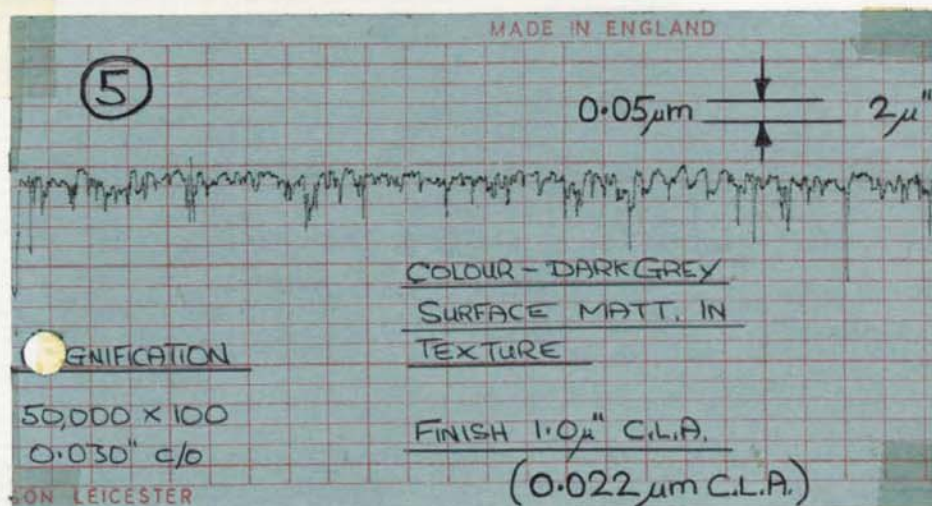 MADE IN ENGLAND
5
0.05µm 2µ"
COLOUR - DARK GREY
SURFACE MATT. IN
TEXTURE
GNIFICATION
50,000 x 100
0.030" c/o
FINISH 1.0µ" C.L.A.
(0.022 µm C.L.A.)
SON LEICESTER